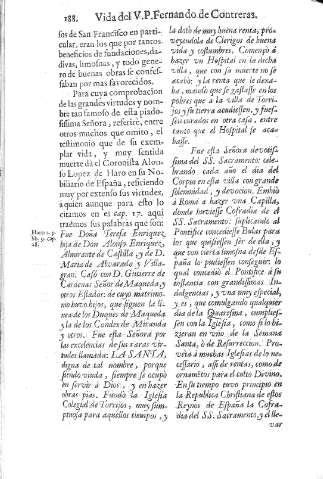 188. Vida del V.P. Fernando de Contreras.
sos de San Francisco en parti-
cular, eran los que por tantos
beneficios de fundaciones, da-
divas, limosnas, y todo gene-
ro de buenas obras se confes-
saban por mas favorecidos.
Para cuya comprobacion
de las grandes virtudes y nom-
bre tan famoso de esta piado-
sissima Señora, referirè, entre
otros muchos que omito, el
testimonio que de su exem-
plar vida, y muy sentida
muerte dà el Coronista Alonso
Lopez de Haro en su No-
biliario de España, refiriendo
muy por extenso sus virtudes,
à quien aunque para esto lo
citamos en el cap. 17. aqui
traèmos sus palabras que son:
Fue Doña Teresa Enriquez
hija de Don Alonso Enriquez,
Almirante de Castilla, y de D.
Maria de Alvarado y Villa-
gran. Casò con D. Gutierre de
Cardenas Señor de Maqueda, y
otros Estados: de cuyo matrimo-
nio huvo hijos, que siguen la li-
nea de los Duques de Maqueda,
y la de los Condes de Miranda
y otros. Fue esta Señora por
las excelencias de sus raras vir-
tudes llamada: LA SANTA,
digna de tal nombre, porque
siendo viuda, siempre se ocupò
en servir à Dios, y en hazer
obras pias. Fundò la Iglesia
Colegial de Torrijos, muy sum-
ptuosa para aquellos tiempos, y
la dotò de muy buena renta, pro-
veyendola de Clerigos de buena
vida y costumbres. Començò à
hazer un Hospital en la dicha
villa, que con su muerte no se
acabò: y la renta que le dexa-
ba, mandò que se gastasse en los
pobres que à la villa de Torri-
jos y su tierra acudiessen, y fues-
sen curados en otra casa, entre
tanto que el Hospital se aca-
basse.
Fue esta Señora devotis-
sima del SS. Sacramento: cele-
brando cada año el dia del
Corpus en esta villa con grande
solemnidad, y devocion. Embiò
à Roma à hazer una Capilla,
donde huviesse Cofradia de el
SS. Sacramento: suplicando al
Pontifice concediesse Bulas para
los que quisiessen ser de ella, y
que con cierta limosna desde Es-
paña lo pudiessen conseguir: lo
qual concediò el Pontifice à su
instancia con grandissimas In-
dulgencias, y una muy especial,
y es, que comulgando qualquier
dia de la Quaresma, cumplies-
sen con la Iglesia, como si lo hi-
zieran en uno de la Semana
Santa, ò de Resurreccion. Pro-
veìa à muchas Iglesias de lo ne-
cessario, assi de rentas, como de
ornamentos para el culto Divino.
En su tiempo tuvo principio en
la Republica Christiana de estos
Reynos de España la Cofra-
dia del SS. Sacramento, y el lle-
var